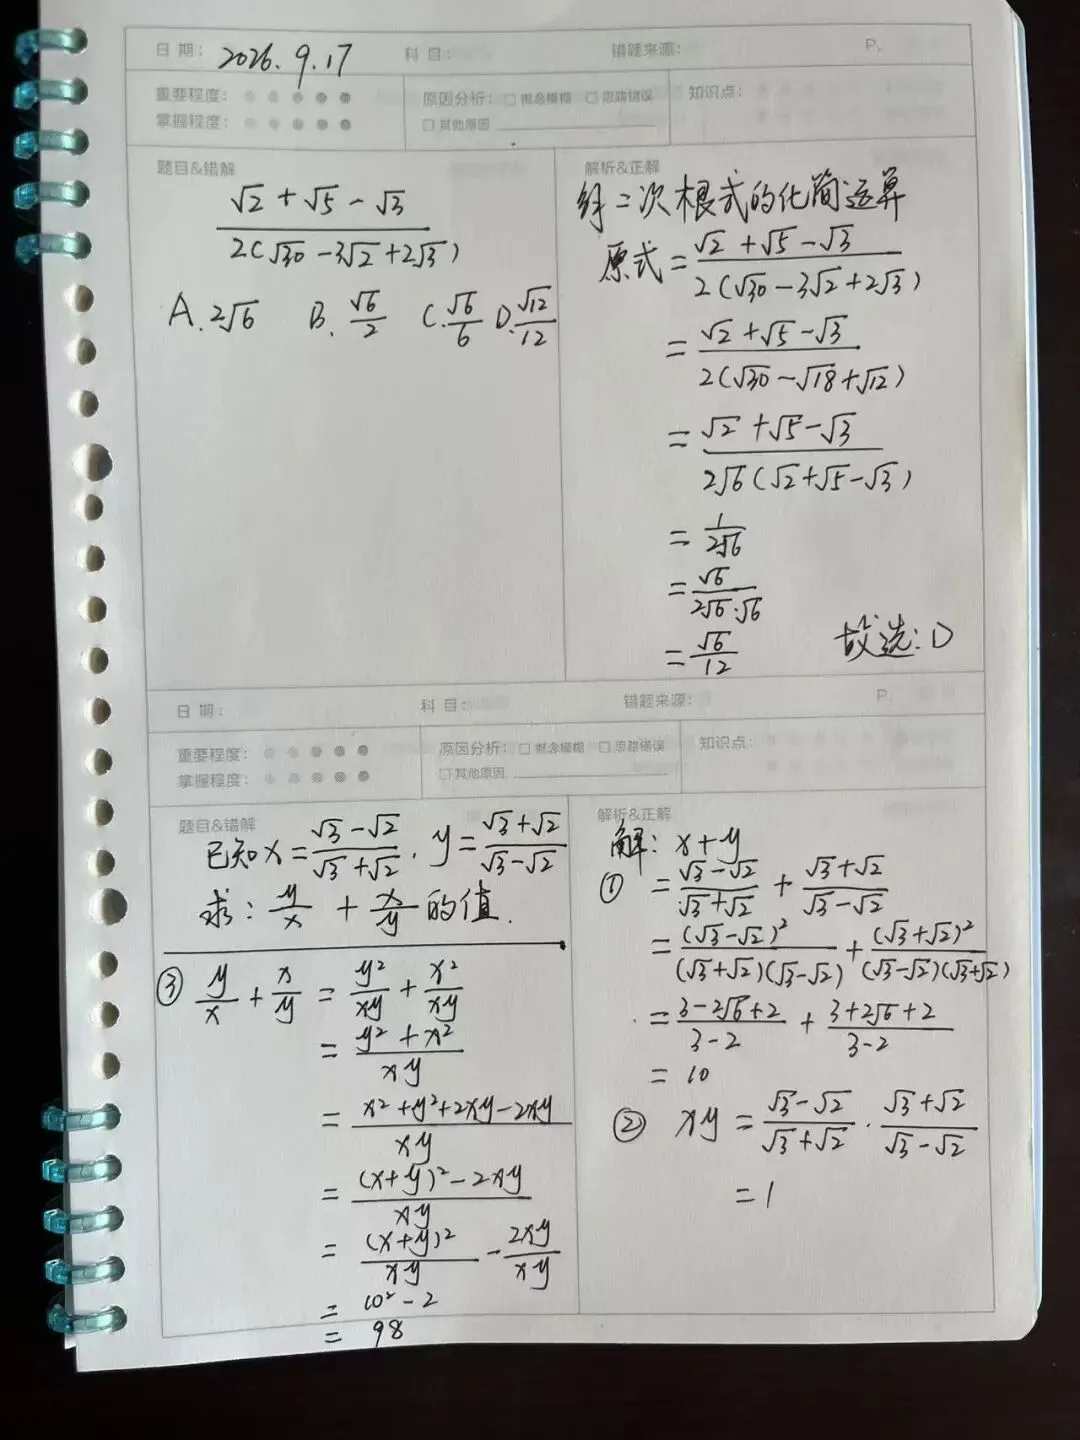 日 期: 2026.9.17 科 目: 错题来源: P.
重要程度: 原因分析: □ 概念模糊 □ 思路错误 知识点:
掌握程度: □ 其他原因
题目&错解
(√2 + √5 - √3) / (2(√30 - 3√2 + 2√3))
A. 2√6 B. √6/2 C. √6/6 D. √12/12
解析&正解
二次根式的化简运算
原式 = (√2 + √5 - √3) / (2(√30 - 3√2 + 2√3))
= (√2 + √5 - √3) / (2(√30 - √18 + √12))
= (√2 + √5 - √3) / (2√6(√2 + √5 - √3))
= 1/(2√6)
= √6/(2√6·√6)
= √6/12 故选: D
日 期: 科 目: 错题来源: P.
重要程度: 原因分析: □ 概念模糊 □ 思路错误 知识点:
掌握程度: □ 其他原因
题目&错解
已知 x = (√3 - √2)/(√3 + √2), y = (√3 + √2)/(√3 - √2)
求: y/x + x/y 的值.
③ y/x + x/y = y²/xy + x²/xy
= (y² + x²)/xy
= (x² + y² + 2xy - 2xy)/xy
= ((x+y)² - 2xy)/xy
= (x+y)²/xy - 2xy/xy
= 10² - 2
= 98
解析&正解
解: x + y
① = (√3 - √2)/(√3 + √2) + (√3 + √2)/(√3 - √2)
= (√3 - √2)²/((√3 + √2)(√3 - √2)) + (√3 + √2)²/((√3 - √2)(√3 + √2))
= (3 - 2√6 + 2)/(3 - 2) + (3 + 2√6 + 2)/(3 - 2)
= 10
② xy = (√3 - √2)/(√3 + √2) · (√3 + √2)/(√3 - √2)
= 1